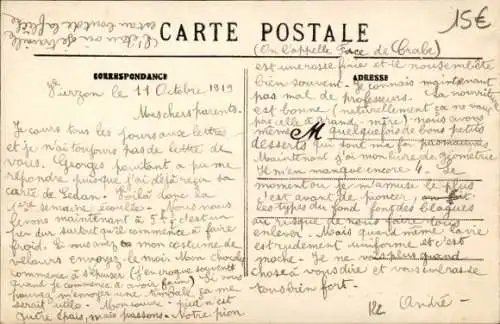 15€
CARTE POSTALE
CORRESPONDANCE
ADRESSE
Vierzon le 11 Octobre 1919
Mes chers parents.
Je cours tous les jours aux lettres
et je n'ai toujours pas de lettre de
vous. Georges pourtant a pu me
répondre puisque j'ai déjà reçu sa
carte de Sedan. Voilà donc la
1ère semaine écoulée. Nous nous
levons maintenant à 5h½ c'est un
peu dur surtout qu'il commence à faire
froid. Si vous avez mon costume de
velours envoyez le moi. Mon chocolat
commence à s'épuiser (j'en croque souvent
quand je commence à avoir faim) Si vous
pouvez m'envoyer une timbale ça me
serait utile.
guère épais, mais passons. Notre pion
(On l'appelle Face de Crabe)
est une rosse finie et il nous embête
bien souvent. Je connais maintenant
pas mal de professeurs. La nourriture
est bonne (naturellement ça ne vaut
pas celle de Grand-mère) nous avons
même quelquefois de bons petits
desserts qui sont ma foi
Maintenant j'ai mon livre de géométrie
Il m'en manque encore 4. Le
moment où je m'amuse le plus
c'est avant de pioncer,
les types du fond font des blagues
au risque de nous faire tous
enlever. Mais quand même Caire
est rudement uniforme et c'est
moche. Je ne vois plus grand
chose à vous dire et vous embrasse
tous bien fort.
André